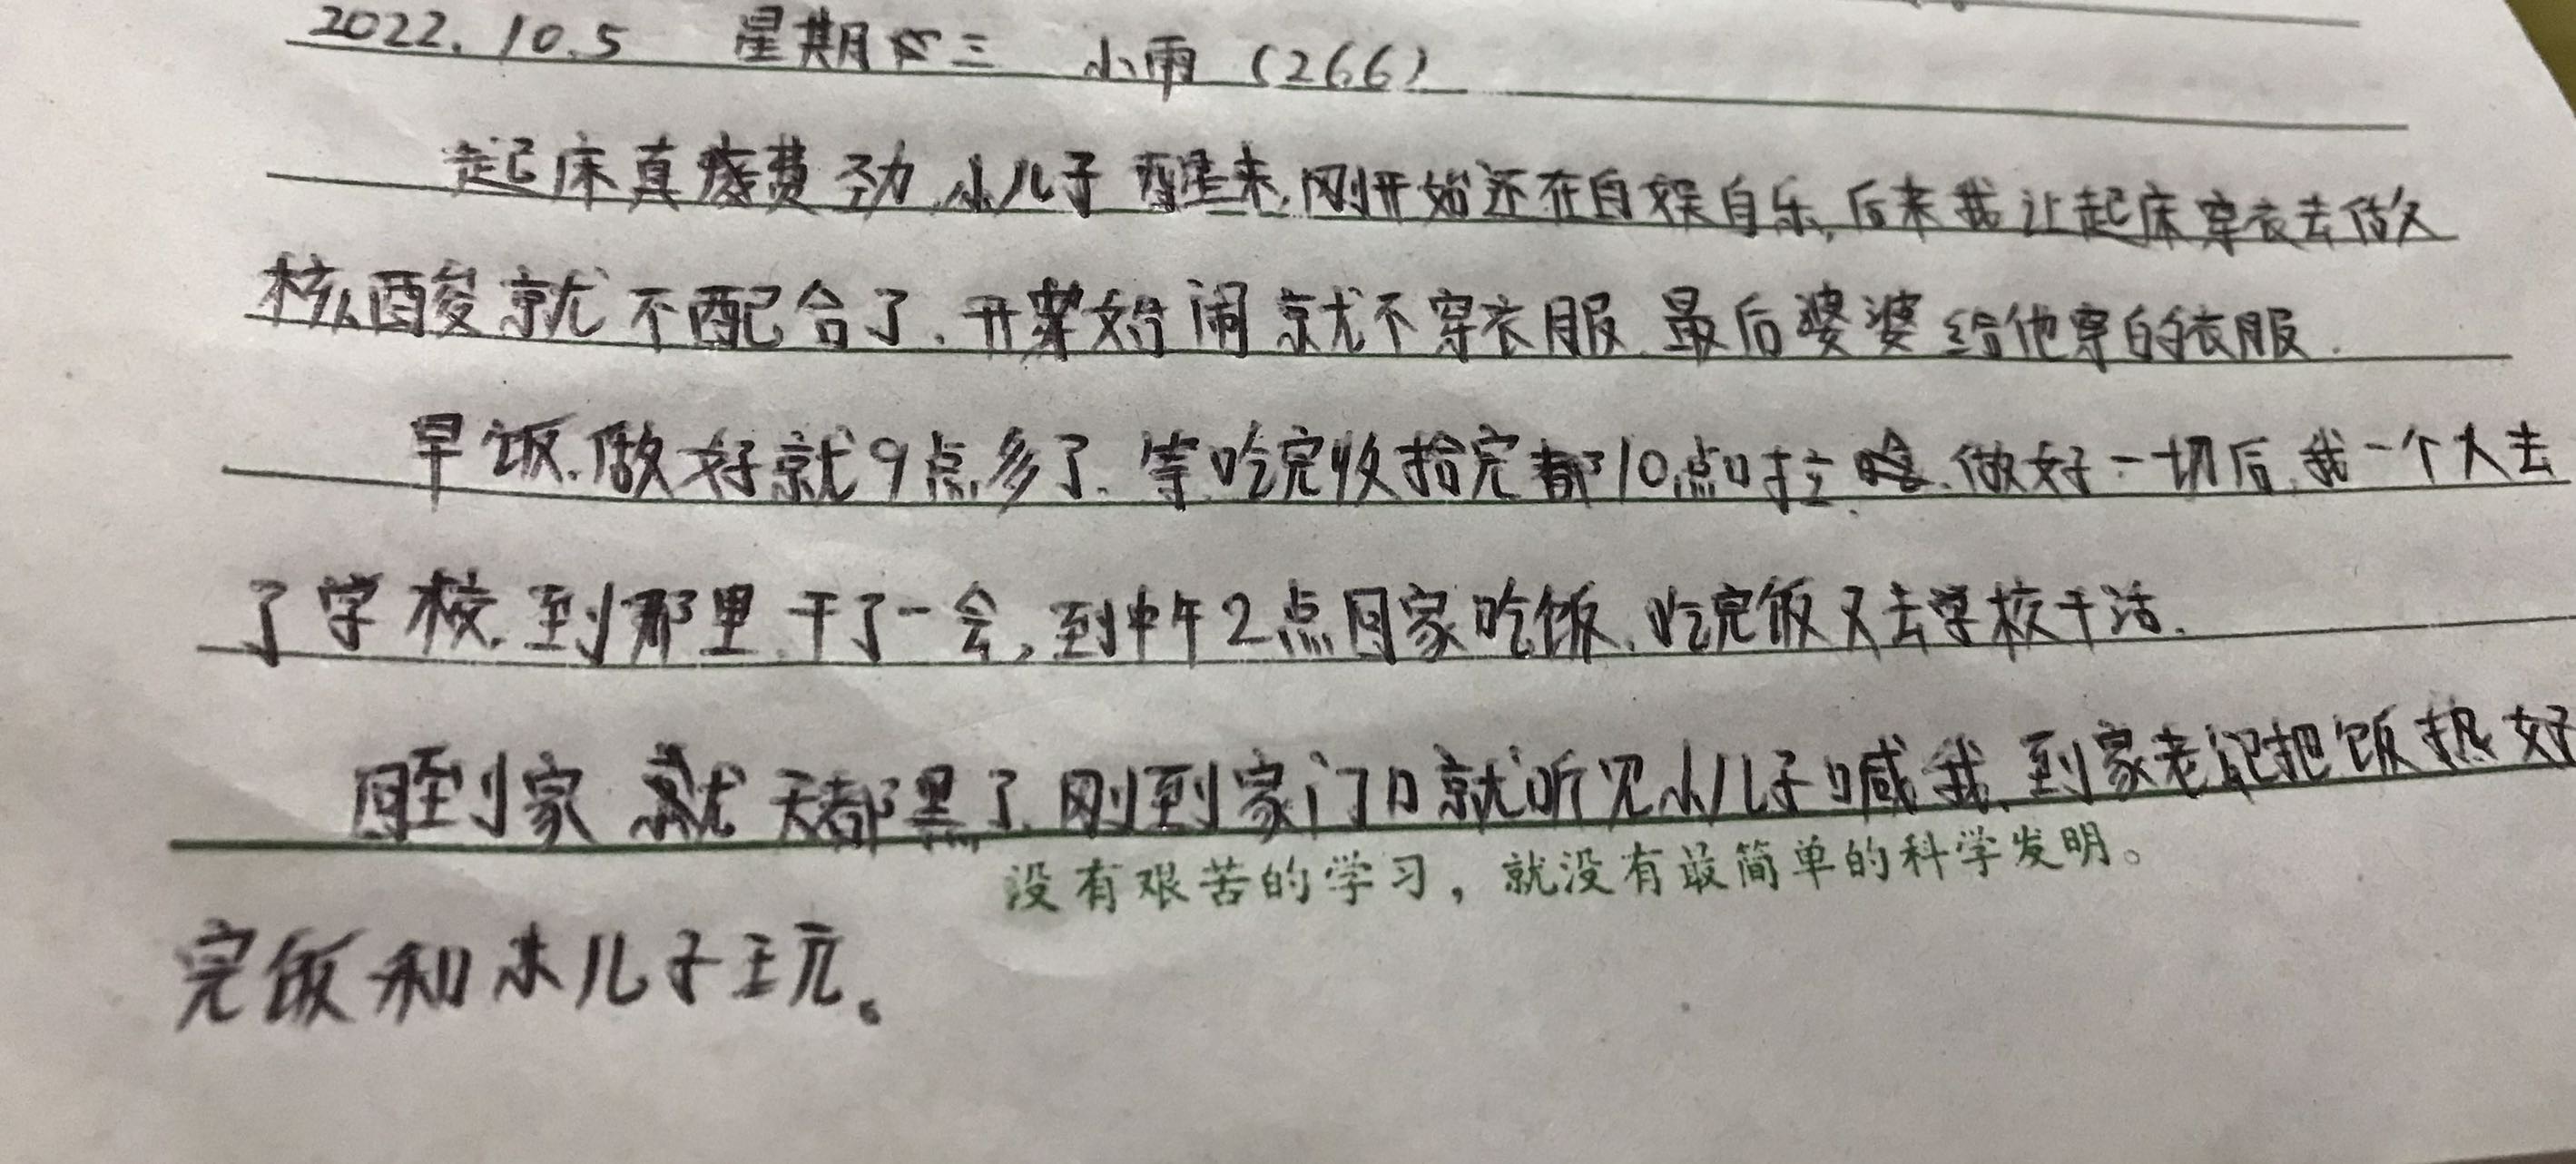 2022.10.5 星期三 小雨 (266)
起床真费劲,小儿子醒来,刚开始还在自娱自乐,后来我让起床穿衣去做
核酸就不配合了.开始闹就不穿衣服.最后婆婆给他穿的衣服.
早饭.做好就9点多了.等吃完收拾完都10点啦.做好一切后,我一个人去
了学校.到那里干了一会,到中午2点回家吃饭.吃完饭又去学校干活.
回到家就天都黑了.刚到家门口就听见小儿子喊我.到家老把饭热好
没有艰苦的学习，就没有最简单的科学发明。
完饭和小儿子玩。